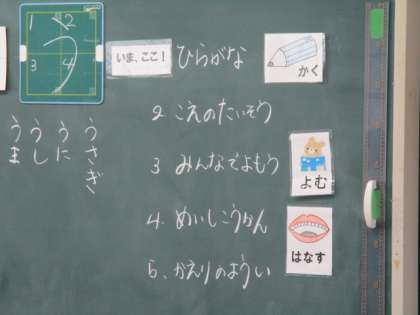 1 2
3 4
う
いま、ここ！ ひらがな
かく
2 こえのたいそう
3 みんなでよもう
よむ
4. めいしこうかん
はなす
5. かえりのようい
うさぎ
うに
うし
うま